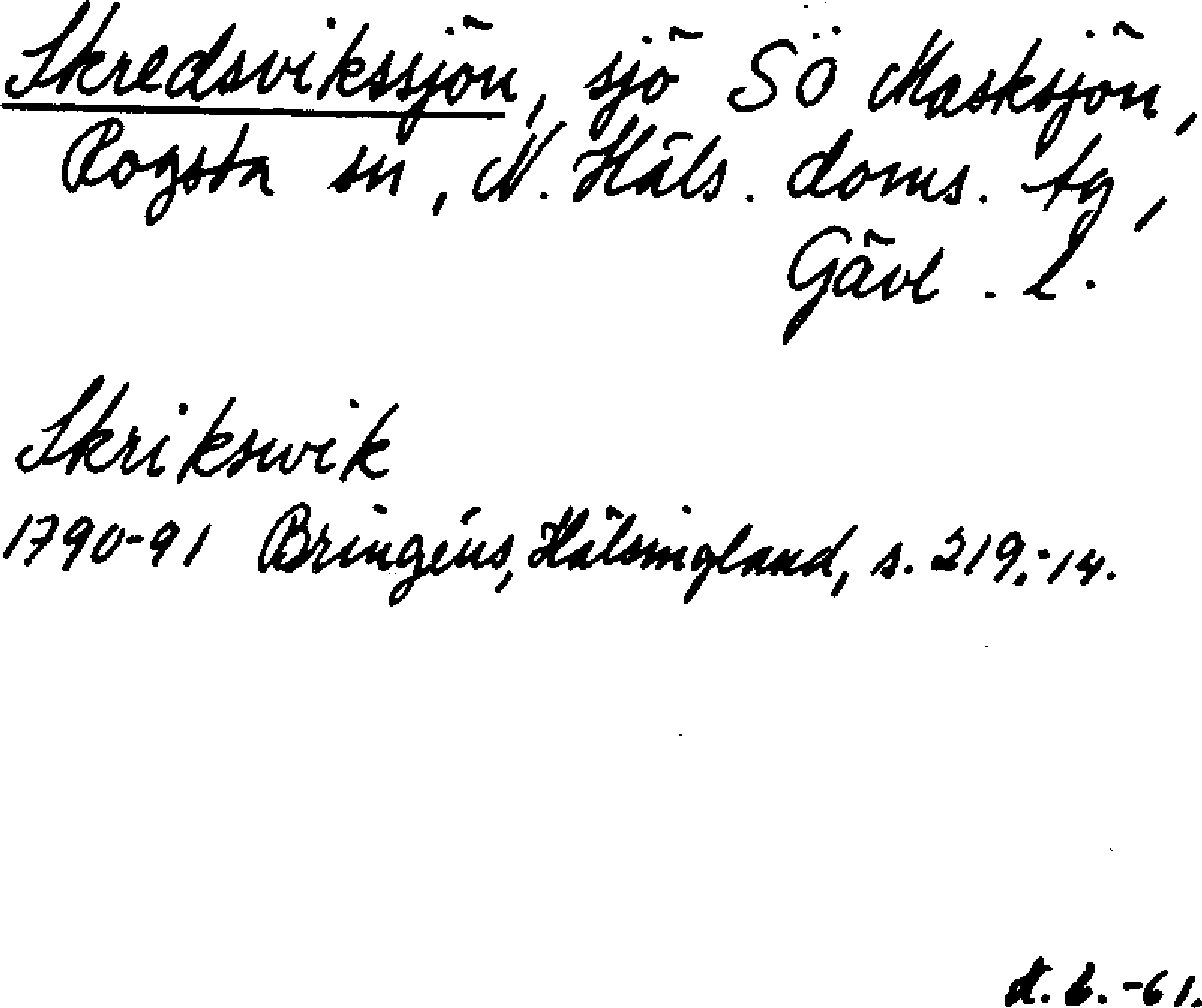 Skredsvikssjön, sjö SÖ Masksjön,
Rogsta sn, N. Häls. doms. tg,
Gävl. l.
Skrikswik
1790-91 Bringéus, Hälsingland, s. 219:14.
-61.